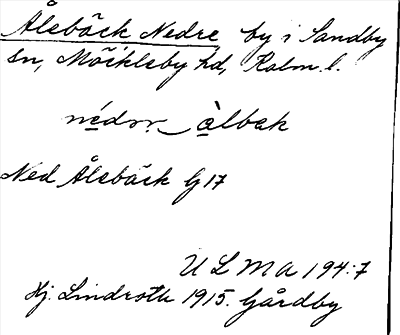 Ålebäck Nedre by i Sandby
sn, Möckleby hd, Kalm. l.
nédrr àlbak
Ned Ålebäck G 17
ULMA 194:7
Hj. Lindroth 1915. Gårdby